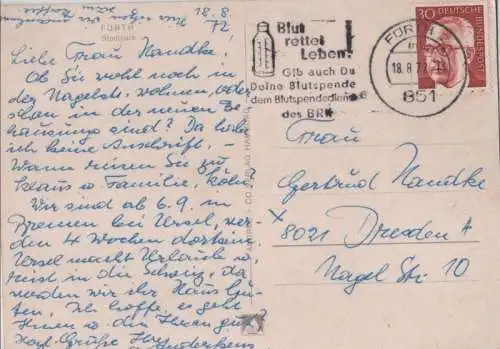 18. 8.
72
FÜRTH
Stadtpark
Liebe Frau Nandke!
Ob Sie wohl noch in
der Nagelstr. wohnen, oder
schon in der neuen Be
hausung sind? Da habe
ich keine Anschrift. –
Wann reisen Sie zu
Klaus u. Familie, Köln?
Wir sind ab 6. 9. in
Bremen bei Ursel, wer-
den 4 Wochen dort sein.
Ursel macht Urlaub u.
reist in die Schweiz, da
werden wir ihr Haus hü-
ten. Ich hoffe, es geht
Ihnen u. den Ihren gut?
Grüße Ihre
Blut
rettet
Leben!
Gib auch Du
Deine Blutspende
dem Blutspendedienst
des BRK
FÜRTH
18. 8. 72
851
30
DEUTSCHE BUNDESPOST
Frau
Gertrud Nandke
8021 Dresden A
Nagel Str. 10